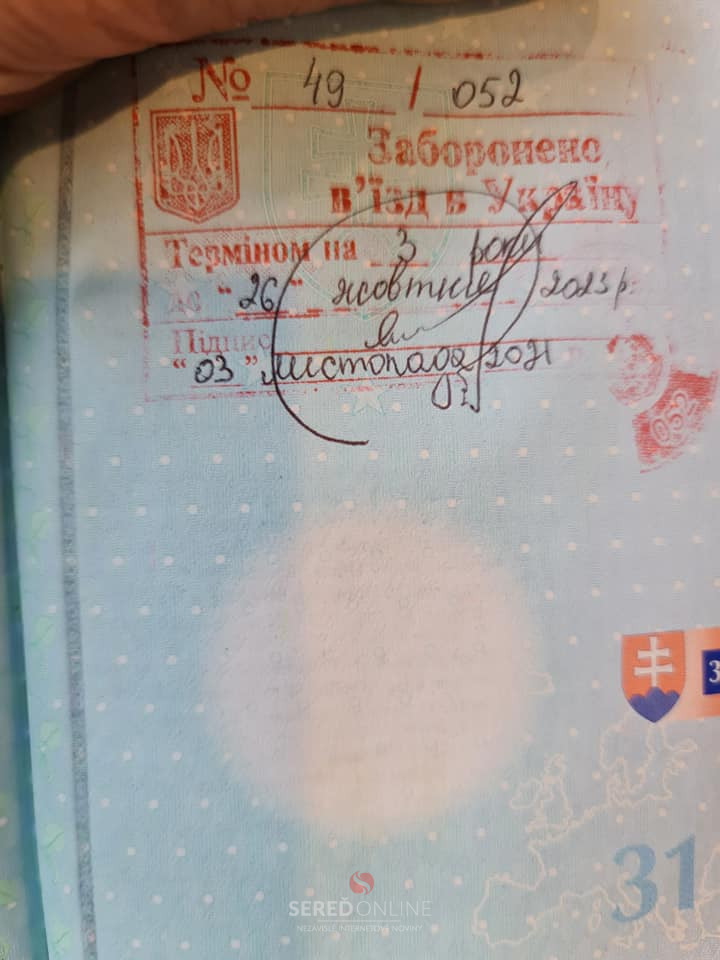 № 49 / 052
Заборонено
в'їзд в Україну
Терміном на 3 роки
до "26" жовтня 2023 р.
Підпис
"03" листопада 2021
052
3
31
SEREĎONLINE
NEZÁVISLÉ INTERNETOVÉ NOVINY